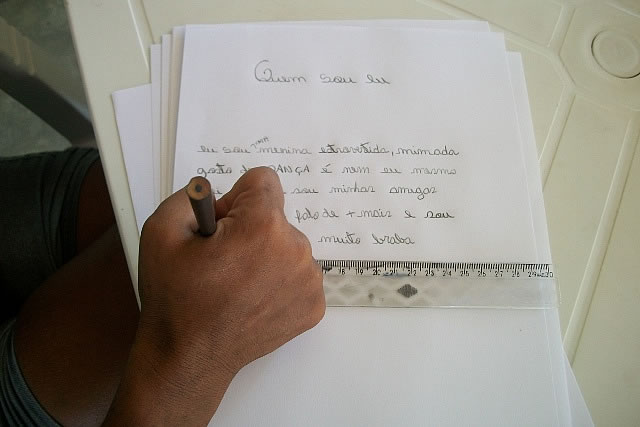 Quem sou eu
eu sou uma menina mimada
gosto de DANÇA é nem eu mesmo
sou minhas amigas
falo de + mais e sou
muito braba
17 18 19 20 21 22 23 24 25 26 27 28 29 30